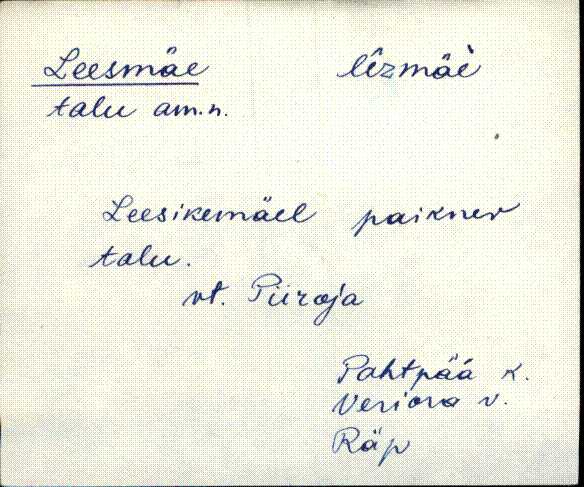 Leesmäe lîzmäè
talu am.n.
Leesikemäel paiknev
talu.
vt. Piiroja
Pahtpää k.
Veriora v.
Räp